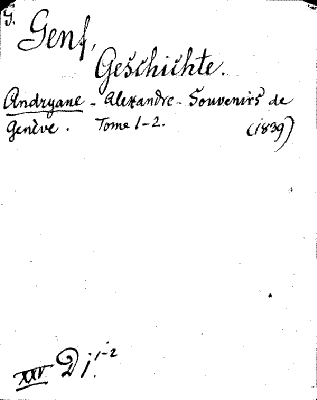 J.
Genf,
Geschichte.
Andryane - Alexandre - Souvenirs de
Genève. Tome 1-2. (1839)
XXV Dj. 1-2